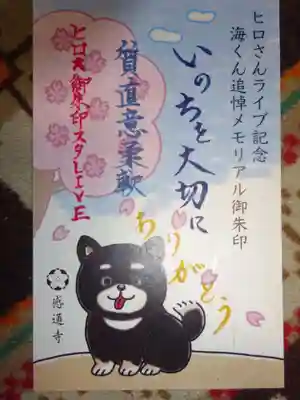 ヒロさんライブ記念
海くん追悼メモリアル御朱印
いのちを大切に
ありがとう
質直意柔軟
ヒロ犬御朱印スタLIVE
感通寺